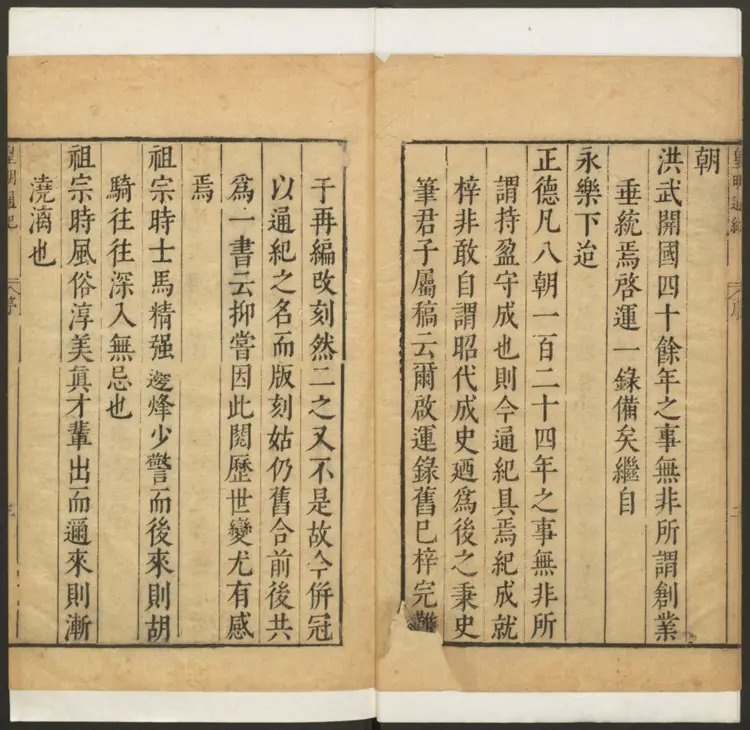 朝
洪武開國四十餘年之事無非所謂創業
垂統焉啓運一錄備矣繼自
永樂下迨
正德凡八朝一百二十四年之事無非所
謂持盈守成也則今通紀具焉紀成就
梓非敢自謂昭代成史廼爲後之秉史
筆君子屬稿云爾啟運錄舊已梓完難
于再編改刻然二之又不是故今併冠
以通紀之名而版刻姑仍舊合前後共
爲一書云抑嘗因此閱歷世變尤有感
焉
祖宗時士馬精强邊烽少警而後來則胡
騎往往深入無忌也
祖宗時風俗淳美眞才輩出而邇來則漸
澆漓也
皇明通紀
序
二